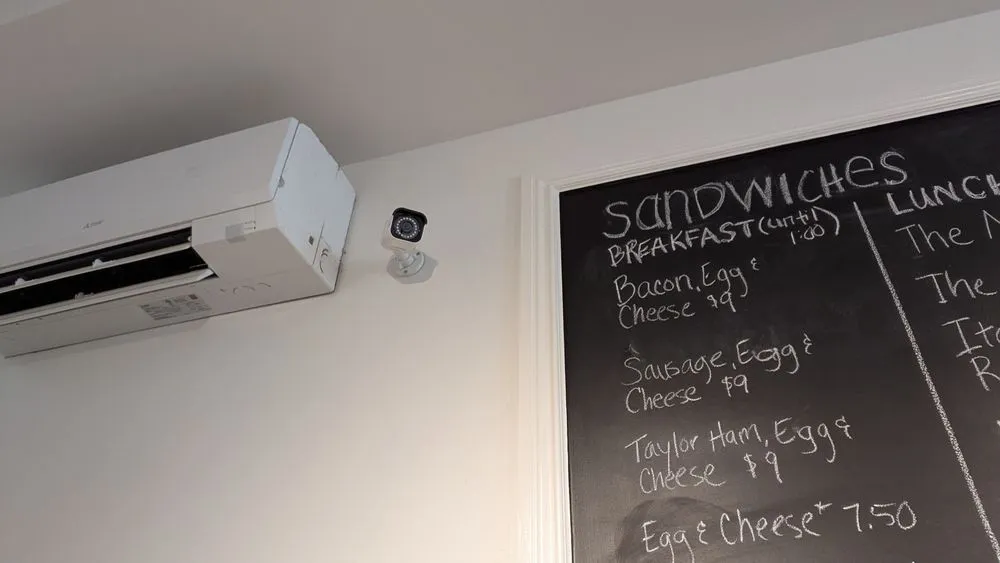 SANDWICHES
BREAKFAST (until 1:00)
Bacon, Egg &
Cheese $9
Sausage, Egg &
Cheese $9
Taylor Ham, Egg &
Cheese $9
Egg & Cheese* 7.50
LUNCH
The
The